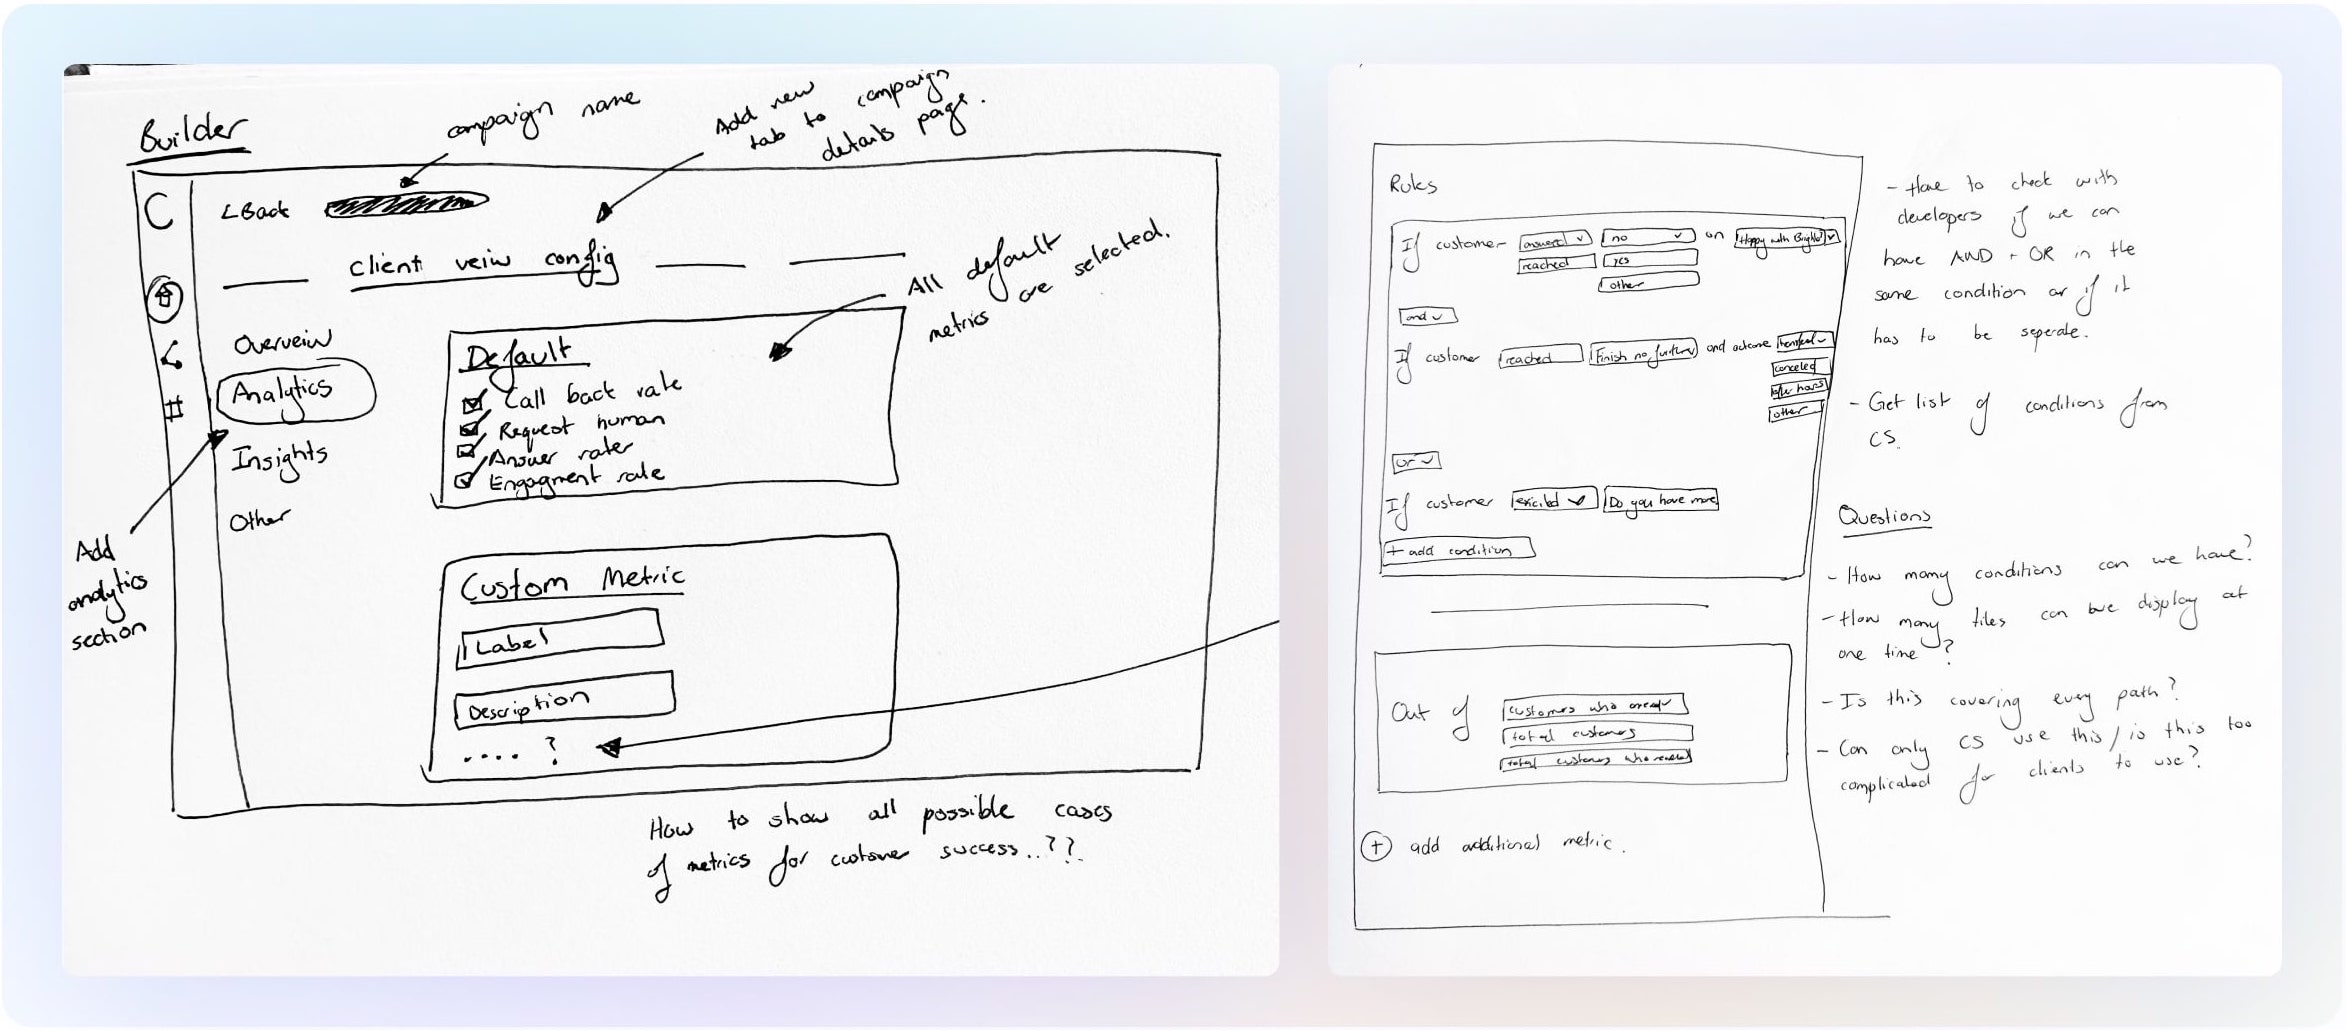 Builder
campaign name
Add new
tab to campaign
details page.
C
< Back
Client veiw config
All default
metrics are selected.
Overveiw
Analytics
Insights
Other
Add
analytics
section
Default
Call back rate
Request human
Answer rate
Engagment rate
Custom Metric
Label
Description
.... ?
How to show all possible cases
of metrics for customer success..??
Rules
If customer answered no on Happy with Bright?
reached yes
other
and
If customer reached Finish no further and outcome
canceled
after hours
other
or
If customer exicited Do you have more
+ add condition
Out of customers who
total customers
total customers who reached
+ add additional metric.
- Have to check with
developers if we can
have AND + OR in the
same condition or if it
has to be seperate.
- Get list of conditions from
CS.
Questions
- How many conditions can we have?
- How many tiles can we display at
one time?
- Is this covering every path?
- Can only CS use this / is this too
complicated for clients to use?